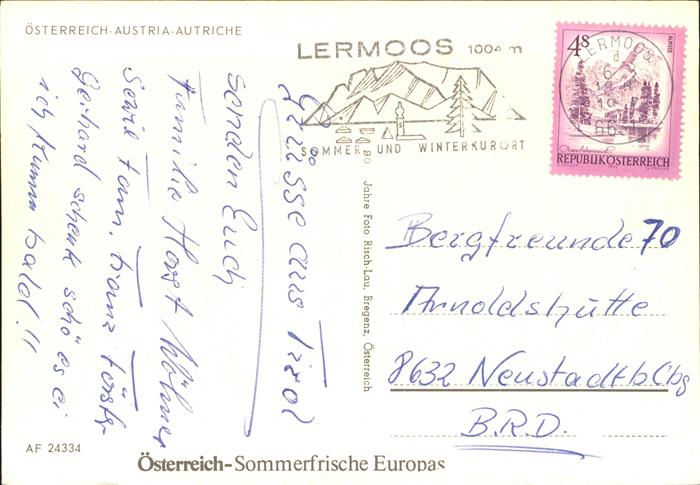 ÖSTERREICH-AUSTRIA-AUTRICHE
LERMOOS 1004 m
SOMMER UND WINTERKURORT
LERMOOS
4S
REPUBLIK ÖSTERREICH
Grüsse aus Tirol
senden Euch
Familie Horst Wölmer
Sowie Fam. Franz Förster
Gerhard schenk schö es ei
ich komm bald!!
90 Jahre Foto Risch-Lau, Bregenz, Österreich
Bergfreunde 70
Arnoldshütte
8632 Neustadt b. Cbg
B.R.D.
AF 24334
Österreich-Sommerfrische Europas